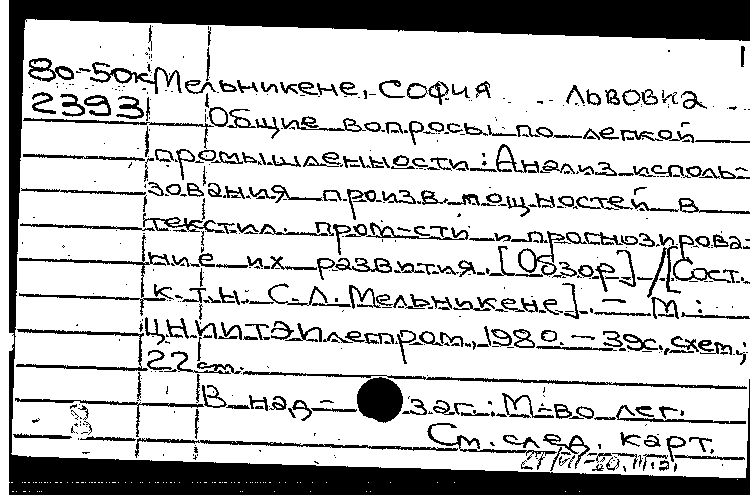 80-50к Мельникене, СОФИЯ ЛЬВОВНА
2393
Общие вопросы по легкой
промышленности: Анализ исполь-
зования произв. мощностей в
текстил. пром-сти и прогнозирова-
ние их развития. [Обзор] / [Сост.
к.т.н. С.Л. Мельникене]. — М.:
ЦНИИТЭИлегпром, 1980. — 39с., схем.;
22 см.
В над- заг.: М-во лег.
См. след. карт.